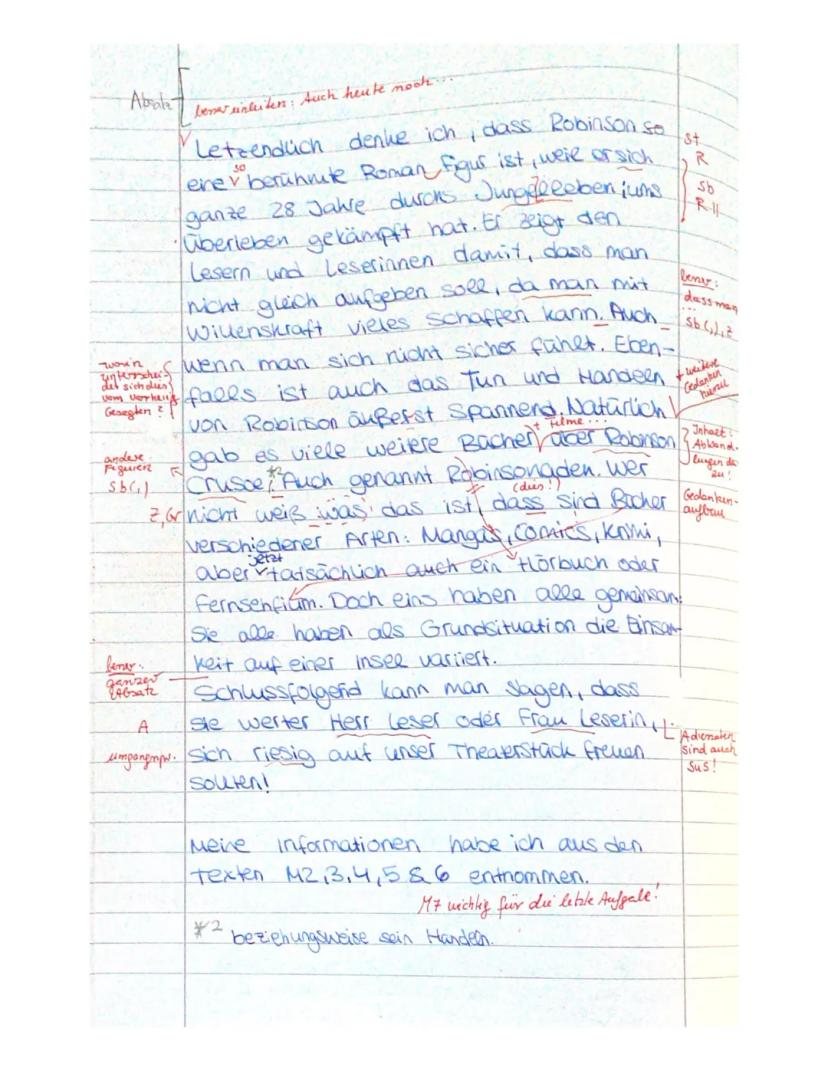 Absatz
besser einleiten: Auch heute noch ...
Letzendlich denke ich, dass Robinson so
eine so berühmte Roman Figur ist, weil er sich
ganze 28 Jahre durchs Jungelleben ums
Überleben gekämpft hat. Er zeigt den
Lesern und Leserinnen damit, dass man
nicht gleich aufgeben soll, da man mit
Willenskraft vieles schaffen kann. Auch
wenn man sich nicht sicher fühlt. Eben-
falls ist auch das Tun und Handeln
von Robinson äußerst spannend. Natürlich
+ Filme ...
gab es viele weitere Bücher über Robinson
Crusoe *2. Auch genannt Robinsonaden. Wer
(dies!)
nicht weiß was das ist, dass sind Bücher
verschiedener Arten: Mangas, Comics, Krimi,
jetzt
aber tatsächlich auch ein Hörbuch oder
Fernsehfilm. Doch eins haben alle gemeinsam:
Sie alle haben als Grundsituation die Einsam-
keit auf einer Insel variiert.
Schlussfolgend kann man sagen, dass
sie werter Herr Leser oder Frau Leserin,
sich riesig auf unser Theaterstück freuen
sollten!
Meine Informationen habe ich aus den
Texten M2,3,4,5 & 6 entnommen.
M7 wichtig für die letzte Aufgabe!
*2 beziehungsweise sein Handeln.
worin
unterschei-
det sich dies
vom vorherig
Gesagten?
andere
Figuren
Sb(,)
Z, Gr
besser:
ganzer
Absatz
A
umgangsspr.
St
R
Sb
R II
besser:
dass man
...
Sb(,), Z
+ weitere
Gedanken
hierzu
Inhalt:
Abwand-
lungen da-
zu!
Gedanken-
aufbau
Adressaten
sind auch
SuS!